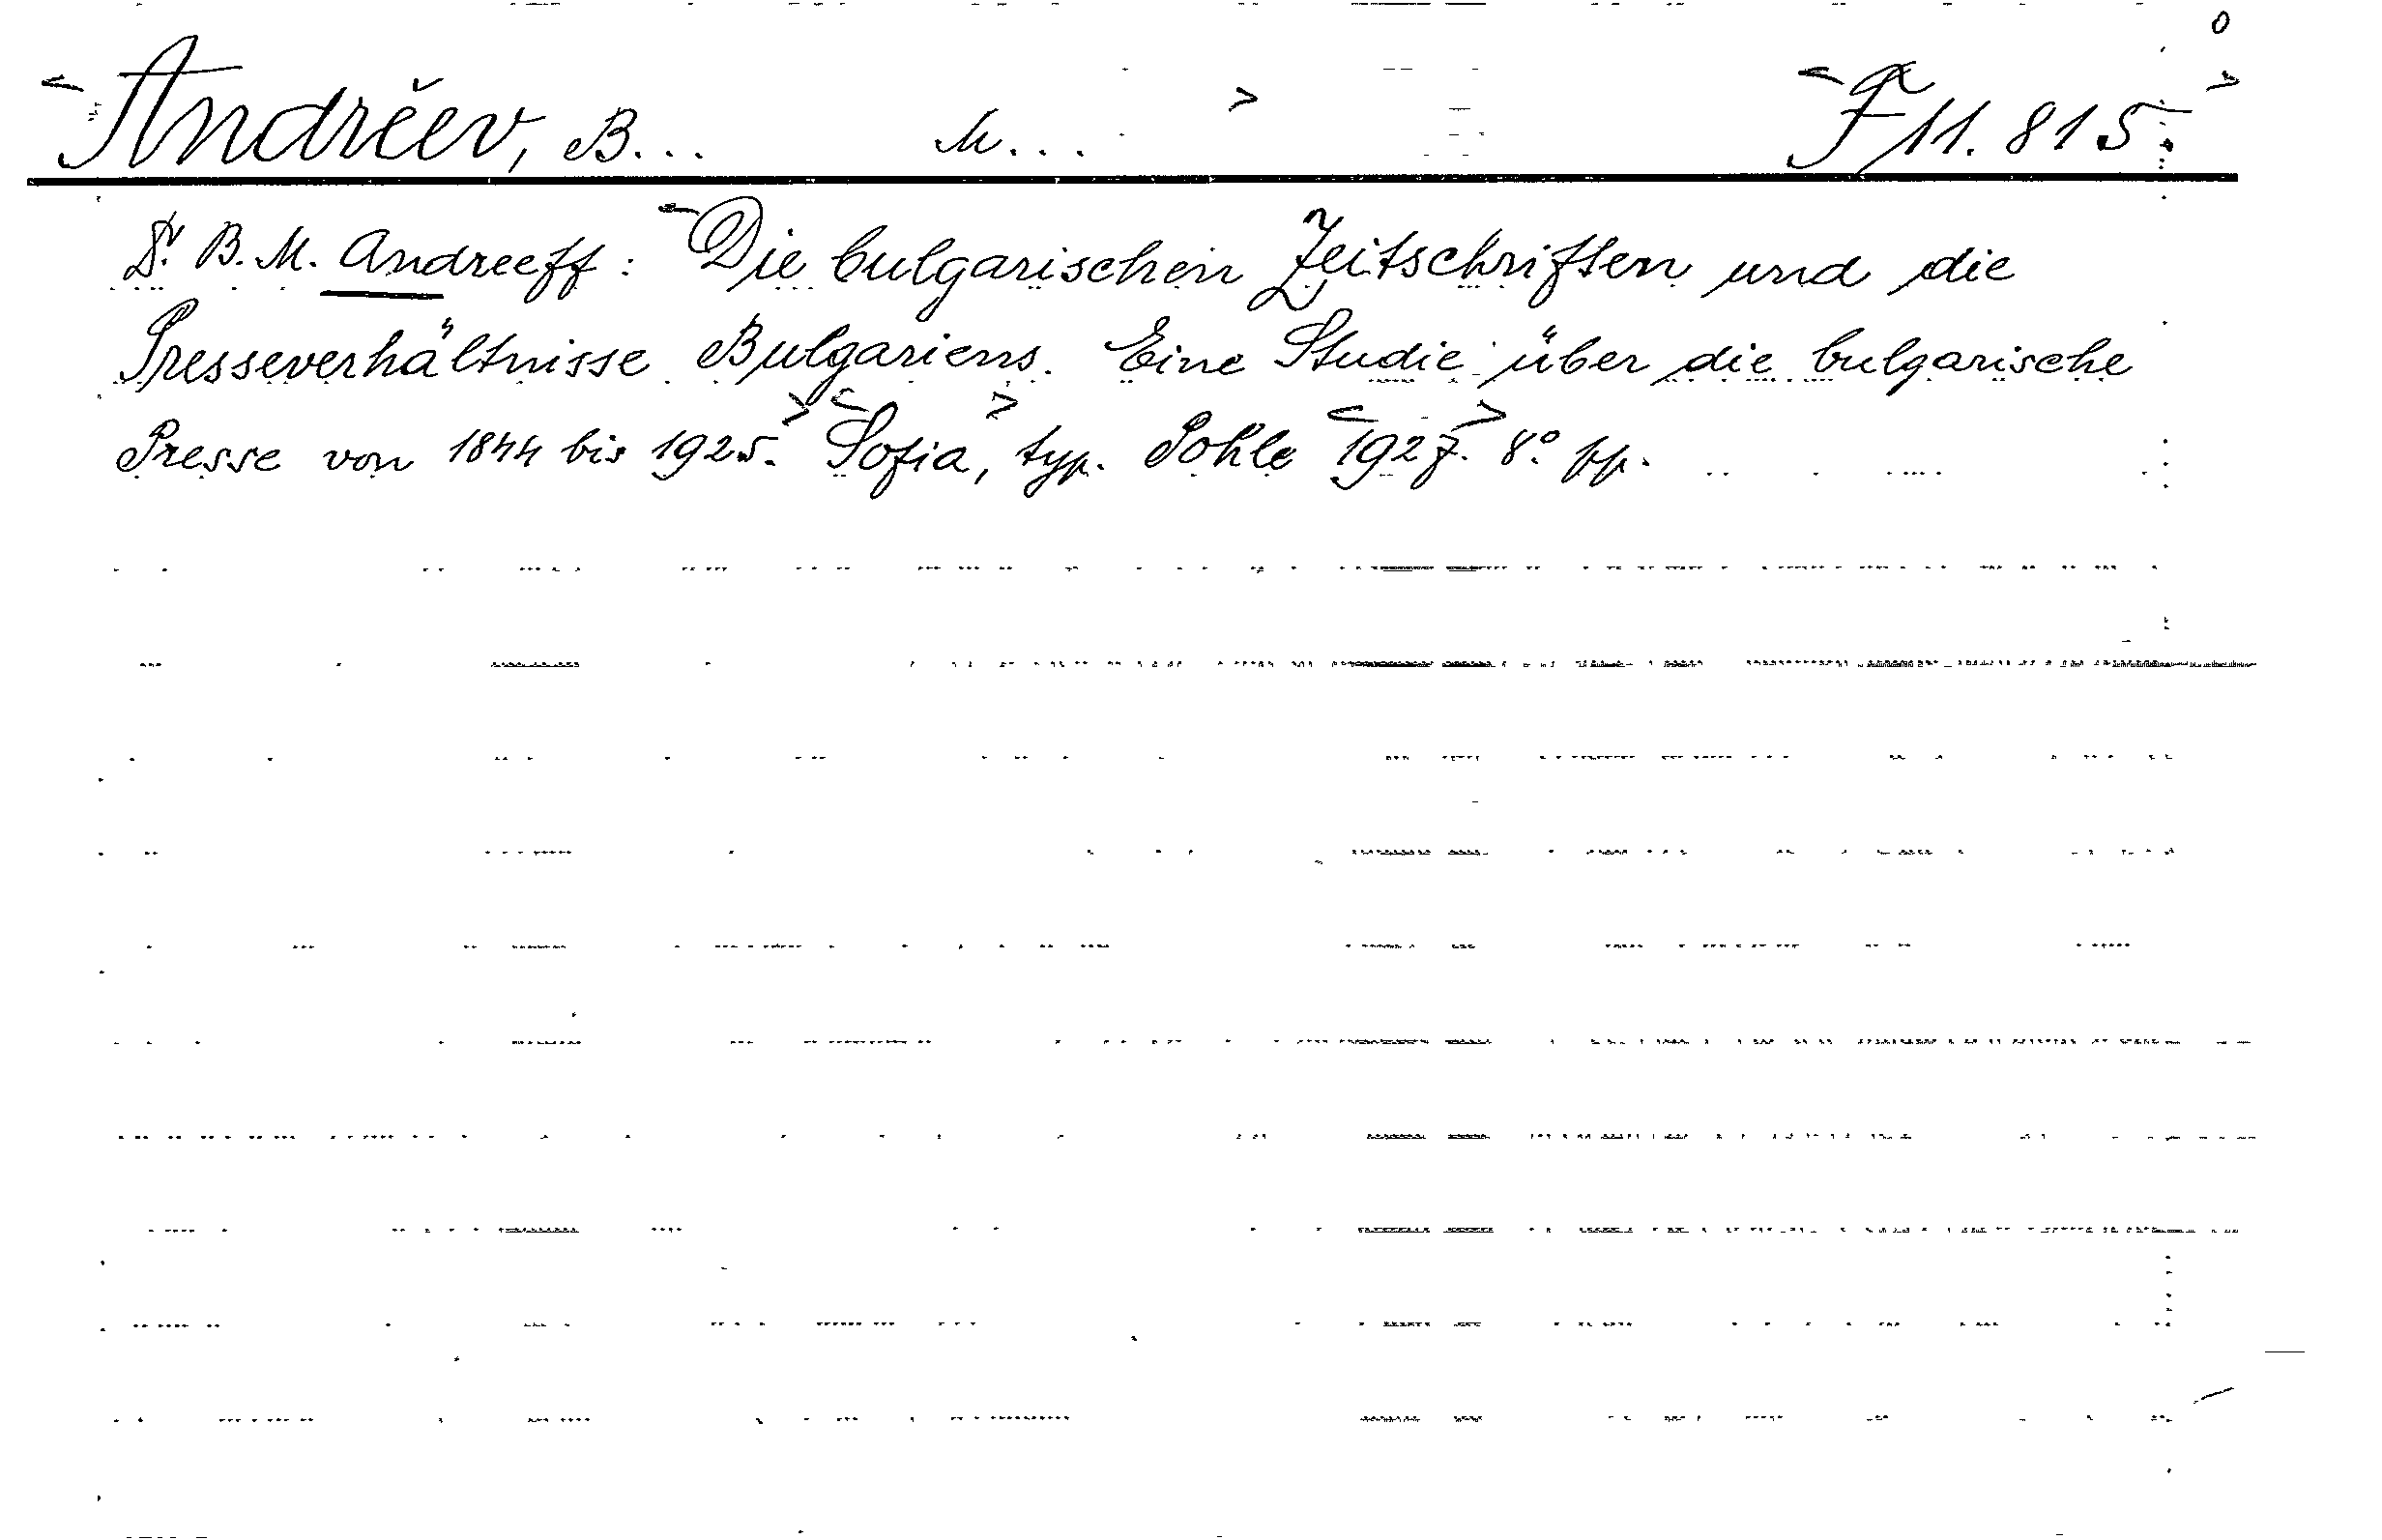 <Andrěev, B... M...> <F 11.815.>
Dr. B. M. Andreeff: <Die bulgarischen Zeitschriften und die
Presseverhältnisse Bulgariens. Eine Studie über die bulgarische
Presse von 1844 bis 1925.> <Sofia>, typ. Pohle <1927.> 8º pp.